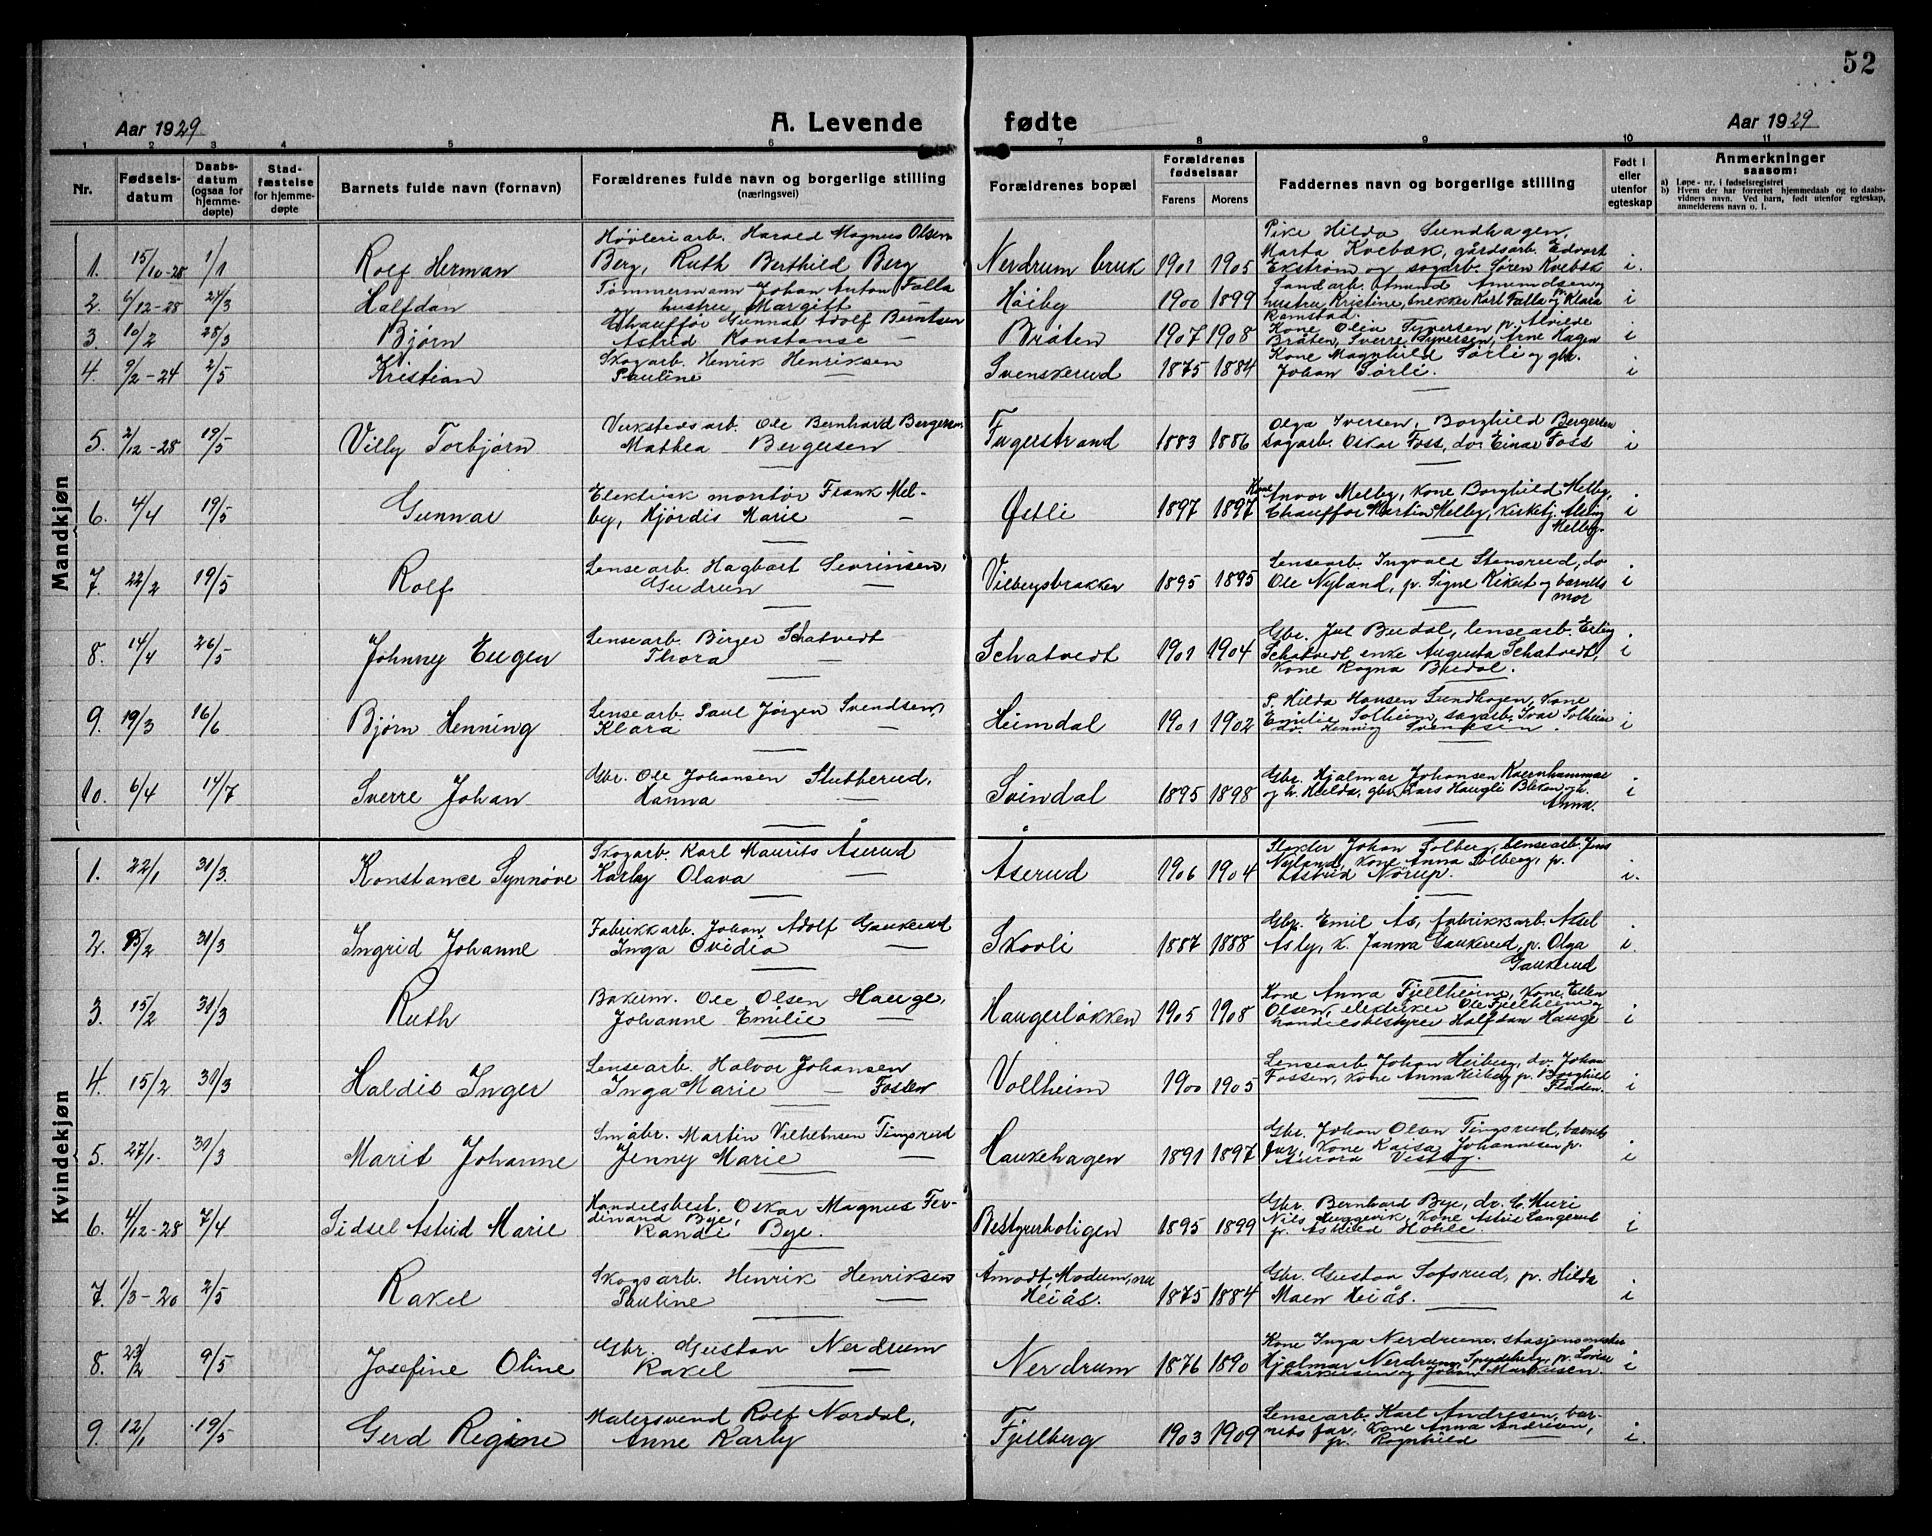 52
Aar 1929 A. Levende fødte Aar 1929
1 2 3 4 5 6 7 8 9 10 11
Nr. Fødselsdatum Daabsdatum (ogsaa for hjemmedøpte) Stadfæstelse for hjemmedøpte Barnets fulde navn (fornavn) Forældrenes fulde navn og borgerlige stilling (næringsvei) Forældrenes bopæl Forældrenes fødselsaar Farens Morens Faddernes navn og borgerlige stilling Født i eller utenfor egteskap Anmerkninger saasom:
a) Løpe-nr. i fødselsregistret
b) Hvem der har forrettet hjemmedaab og to daabsvidners navn. Ved barn, født utenfor egteskap, anmelderens navn o. l.
Mandkjøn
1. 15/10-28 1/1 Rolf Herman Høvleriarb. Harald Magnus Olsen Berg, Ruth Berthild Berg Nerdrum bruk 1901 1905 Pike Hilda Sundhagen, Marta Kvebæk, gårdsarb. Edvart Ekstrøm og sagarb. Søren Kvebæk i.
2. 6/12-28 24/3 Halfdan Tømmermann Johan Anton Falla hustru Margitt — Høiby 1900 1899 Jandarb. Amund Amundsen og hustru Kristine, snekker Karl Falla og Klara Ramstad. i
3. 10/2 28/3 Bjørn Chauffør Gunnar Adolf Berntsen Astrid Konstanse — Bråten 1907 1908 Kone Olia Syversen, p. Alvilde Bråten, Sverre Syversen, Arne Hagen i
4. 9/2-24 2/5 Kristian Skogarb. Henrik Henriksen Pauline — Svenskerud 1875 1884 Kone Magnhild Sørli og gbr. Johan Sørli. i
5. 2/12-28 19/5 Villy Torbjørn Verkstedsarb. Ole Bernhard Bergersen Mathea Bergersen Fugerstrand 1883 1886 Olga Iversen, Borghild Bergersen sagarb. Oskar Foss, do. Einar Foss i
6. 4/4 19/5 Gunnar Elektrisk montør Frank Melby, Hjørdis Marie — Østli 1897 1897 Kone Anvor Melby, Kone Borghild Melby, Chauffør Martin Melby, kirketj. Melby. i
7. 22/2 19/5 Rolf Lensearb. Hagbart Sevrinsen, Gudrun Vilbergsbrakken 1895 1895 Lensearb. Ingvald Stensrud, do Ole Nyland, p. Signe og barnets mor i
8. 14/4 26/5 Johnny Eugen Lensearb. Birger Schatvedt Thora — Schatvedt 1901 1904 Gbr. Jul Budal, lensearb. Erling Schatvedt, enke Augusta Schatvedt, Kone Ragna Buedal. i
9. 19/3 16/6 Bjørn Henning Lensearb. Paul Jørgen Svendsen, Klara — Heimdal 1901 1902 P. Hilda Hansen Sundhagen, Kone Emilie Solheim, sagarb. Ivar Solheim do. Henning Svendsen. i
10. 6/4 14/7 Sverre Johan Gbr. Ole Johansen Slutterud, Hanna — Svindal 1895 1898 Gbr. Hjalmar Johansen og h. Hilda, gbr. Lars Haugli Bleken og h. Anna. i
Kvindekjøn
1. 22/1 31/3 Konstance Synnøve Skogarb. Karl Maurits Åserud Karly Olava — Åserud 1906 1904 Slakter Johan Solberg, lensearb. Jens Nyland, Kone Anna Solberg, p. Astrid Nørup. i.
2. 15/2 31/3 Ingrid Johanne Fabrikkarb. Johan Adolf Gaukerud Inga Ovidia Skovli 1887 1888 Gbr. Emil Ås, fabrikkarb. Aksel Asly, K. Janna Gaukerud, p. Olga Gaukerud i.
3. 15/2 31/3 Ruth Bakerm. Ole Olsen Hauge, Johanne Emilie — Haugerløkken 1905 1908 Kone Anna Fjellheim, Kone Ellen Olsen, elektriker Ole Fjellheim og handelsbestyrer Halfdan Hauge i
4. 15/2 31/3 Haldis Inger Lensearb. Halvor Johansen Inga Marie — Fossen Vollheim 1900 1905 Lensearb. Johan Heiberg, do Johan Fossen, Kone Anna Heiberg, p. Borghild Fladen. i
5. 27/1. 31/3 Marit Johanne Småbr. Martin Vilhelmsen Tingsrud Jenny Marie — Haukehagen 1891 1897 Gbr. Johan Olsen Tingsrud, barnets far, Kone Kaisa Johannesen, p. Aurora Vestby. i
6. 4/12-28 7/4 Sidsel Astrid Marie Handelsbest. Oskar Magnus Ferdinand Bye, Randi Bye. Bestyrerboligen 1895 1899 Gbr. Bernhard Bye, do. C. Muri Nils, Kone Astri Langerud p. Astrid Hohle. i
7. 1/3-20 2/5 Rakel Skogsarb. Henrik Henriksen Pauline — Åmodt, Modum, nu Heiås. 1875 1884 Gbr. Gustav Sofsrud, p. Hilda Maen Heiås. i
8. 23/2 9/5 Josefine Oline Gbr. Gustav Nerdrum Rakel — Nerdrum 1876 1890 Kone Inga Nerdrum, stasjonsmester Hjalmar Nerdrum, Spydeberg, p. Lovise Markussen og Johan Markussen. i
9. 12/1 19/5 Gerd Regine Malersvend Rolf Nordal, Anne Karly Fjellberg 1903 1909 Lensearb. Karl Andresen, barnets far, Kone Anna Andresen, p. Ragnhild i.